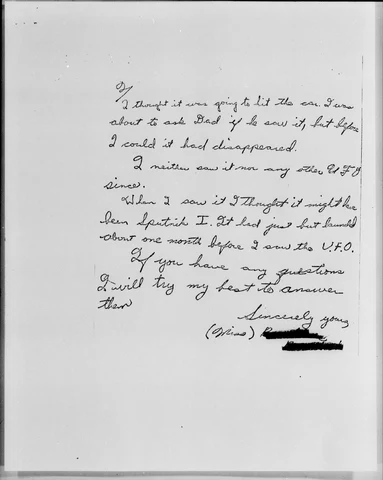 2/
I thought it was going to hit the car. I was
about to ask Dad if he saw it, but before
I could it had disappeared.
I neither saw it nor any other U F O
since.
When I saw it I thought it might have
been Sputnik I. It had just been launched
about one month before I saw the U.F.O.
If you have any questions
I will try my best to answer
them
Sincerely yours,
(Miss)